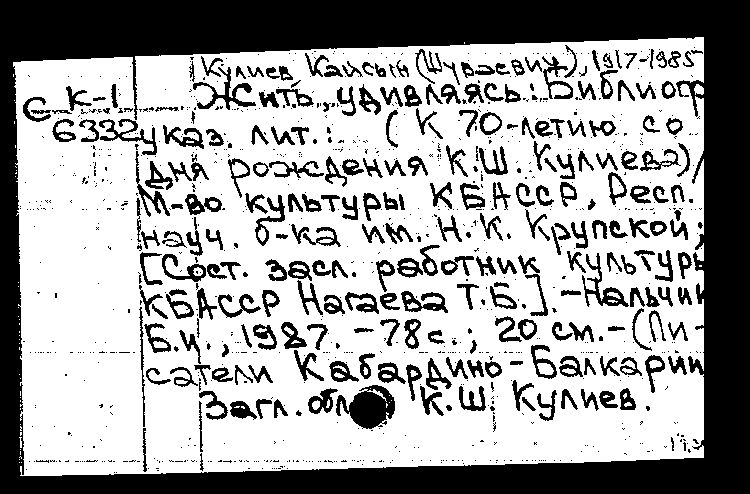 Кулиев Кайсын (Шуваевич), 1917-1985
С К-1 Жить, удивляясь: Библиогр
6332 указ. лит.: (К 70-летию со
дня рождения К.Ш. Кулиева)/
М-во культуры КБАССР, Респ.
науч. б-ка им. Н.К. Крупской;
[Сост. засл. работник культуры
КБАССР Нагаева Т.Б.]. - Нальчик
Б.и., 1987. - 78 с.; 20 см. - (Пи-
сатели Кабардино-Балкарии
Загл. обл. К.Ш. Кулиев.